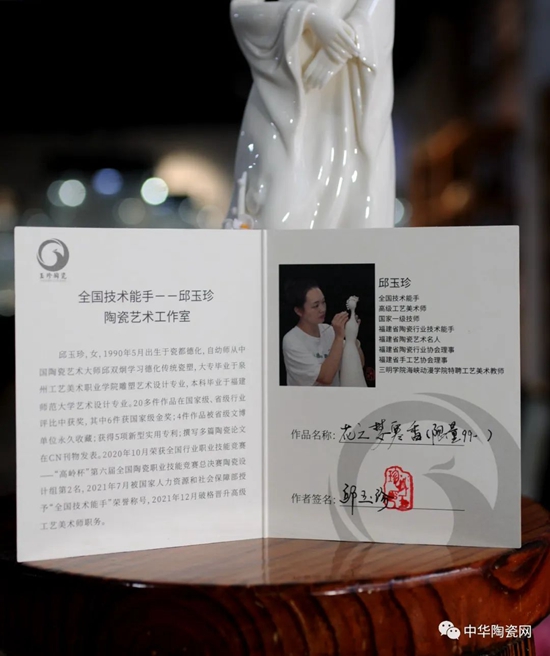 玉珍陶瓷
全国技术能手——邱玉珍
陶瓷艺术工作室
邱玉珍，女，1990年5月出生于瓷都德化，自幼师从中
国陶瓷艺术大师邱双炯学习德化传统瓷塑，大专毕业于泉
州工艺美术职业学院雕塑艺术设计专业，本科毕业于福建
师范大学艺术设计专业，20多件作品在国家级，省级行业
评比中获奖，其中6件获国家级金奖；4件作品被省级文博
单位永久收藏；获得5项新型实用专利；撰写多篇陶瓷论文
在CN刊物发表。2020年10月荣获全国行业职业技能竞赛
——“高岭杯”第六届全国陶瓷职业技能竞赛总决赛陶瓷设
计组第2名，2021年7月被国家人力资源和社会保障部授
予“全国技术能手”荣誉称号，2021年12月破格晋升高级
工艺美术师职务。
邱玉珍
全国技术能手
高级工艺美术师
国家一级技师
福建省陶瓷行业技术能手
福建省陶瓷艺术名人
福建省陶瓷行业协会理事
福建省手工艺协会理事
三明学院海峡动漫学院特聘工艺美术教师
作品名称：花之梦 香(限量99
作者签名：邱玉珍
中华陶瓷网